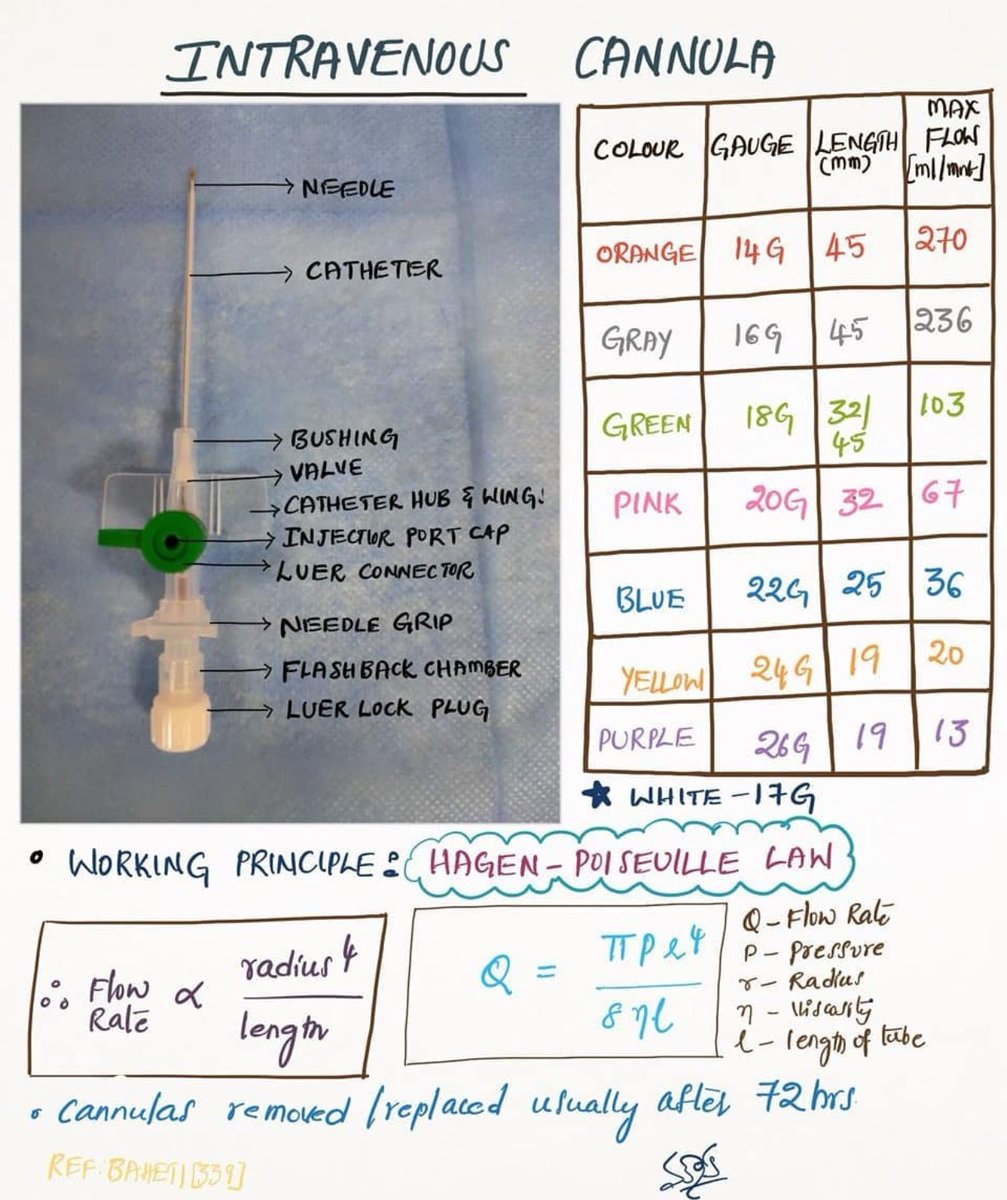 INTRAVENOUS CANNULA
NEEDLE
CATHETER
BUSHING
VALVE
CATHETER HUB & WING!
INJECTIOR PORT CAP
LUER CONNECTOR
NEEDLE GRIP
FLASHBACK CHAMBER
LUER LOCK PLUG
COLOUR GAUGE LENGTH (mm) MAX FLOW [ml/mnt]
ORANGE 14G 45 270
GRAY 16G 45 236
GREEN 18G 32/45 103
PINK 20G 32 67
BLUE 22G 25 36
YELLOW 24G 19 20
PURPLE 26G 19 13
★ WHITE - 17G
• WORKING PRINCIPLE: HAGEN - POISEUILLE LAW
∴ Flow Rate ∝ radius 4 / length
Q = πpr⁴ / 8ηl
Q - Flow Rate
P - Pressure
r - Radius
η - Viscosity
l - length of tube
• Cannulas removed / replaced usually after 72 hrs.
REF: BAHETI [339]